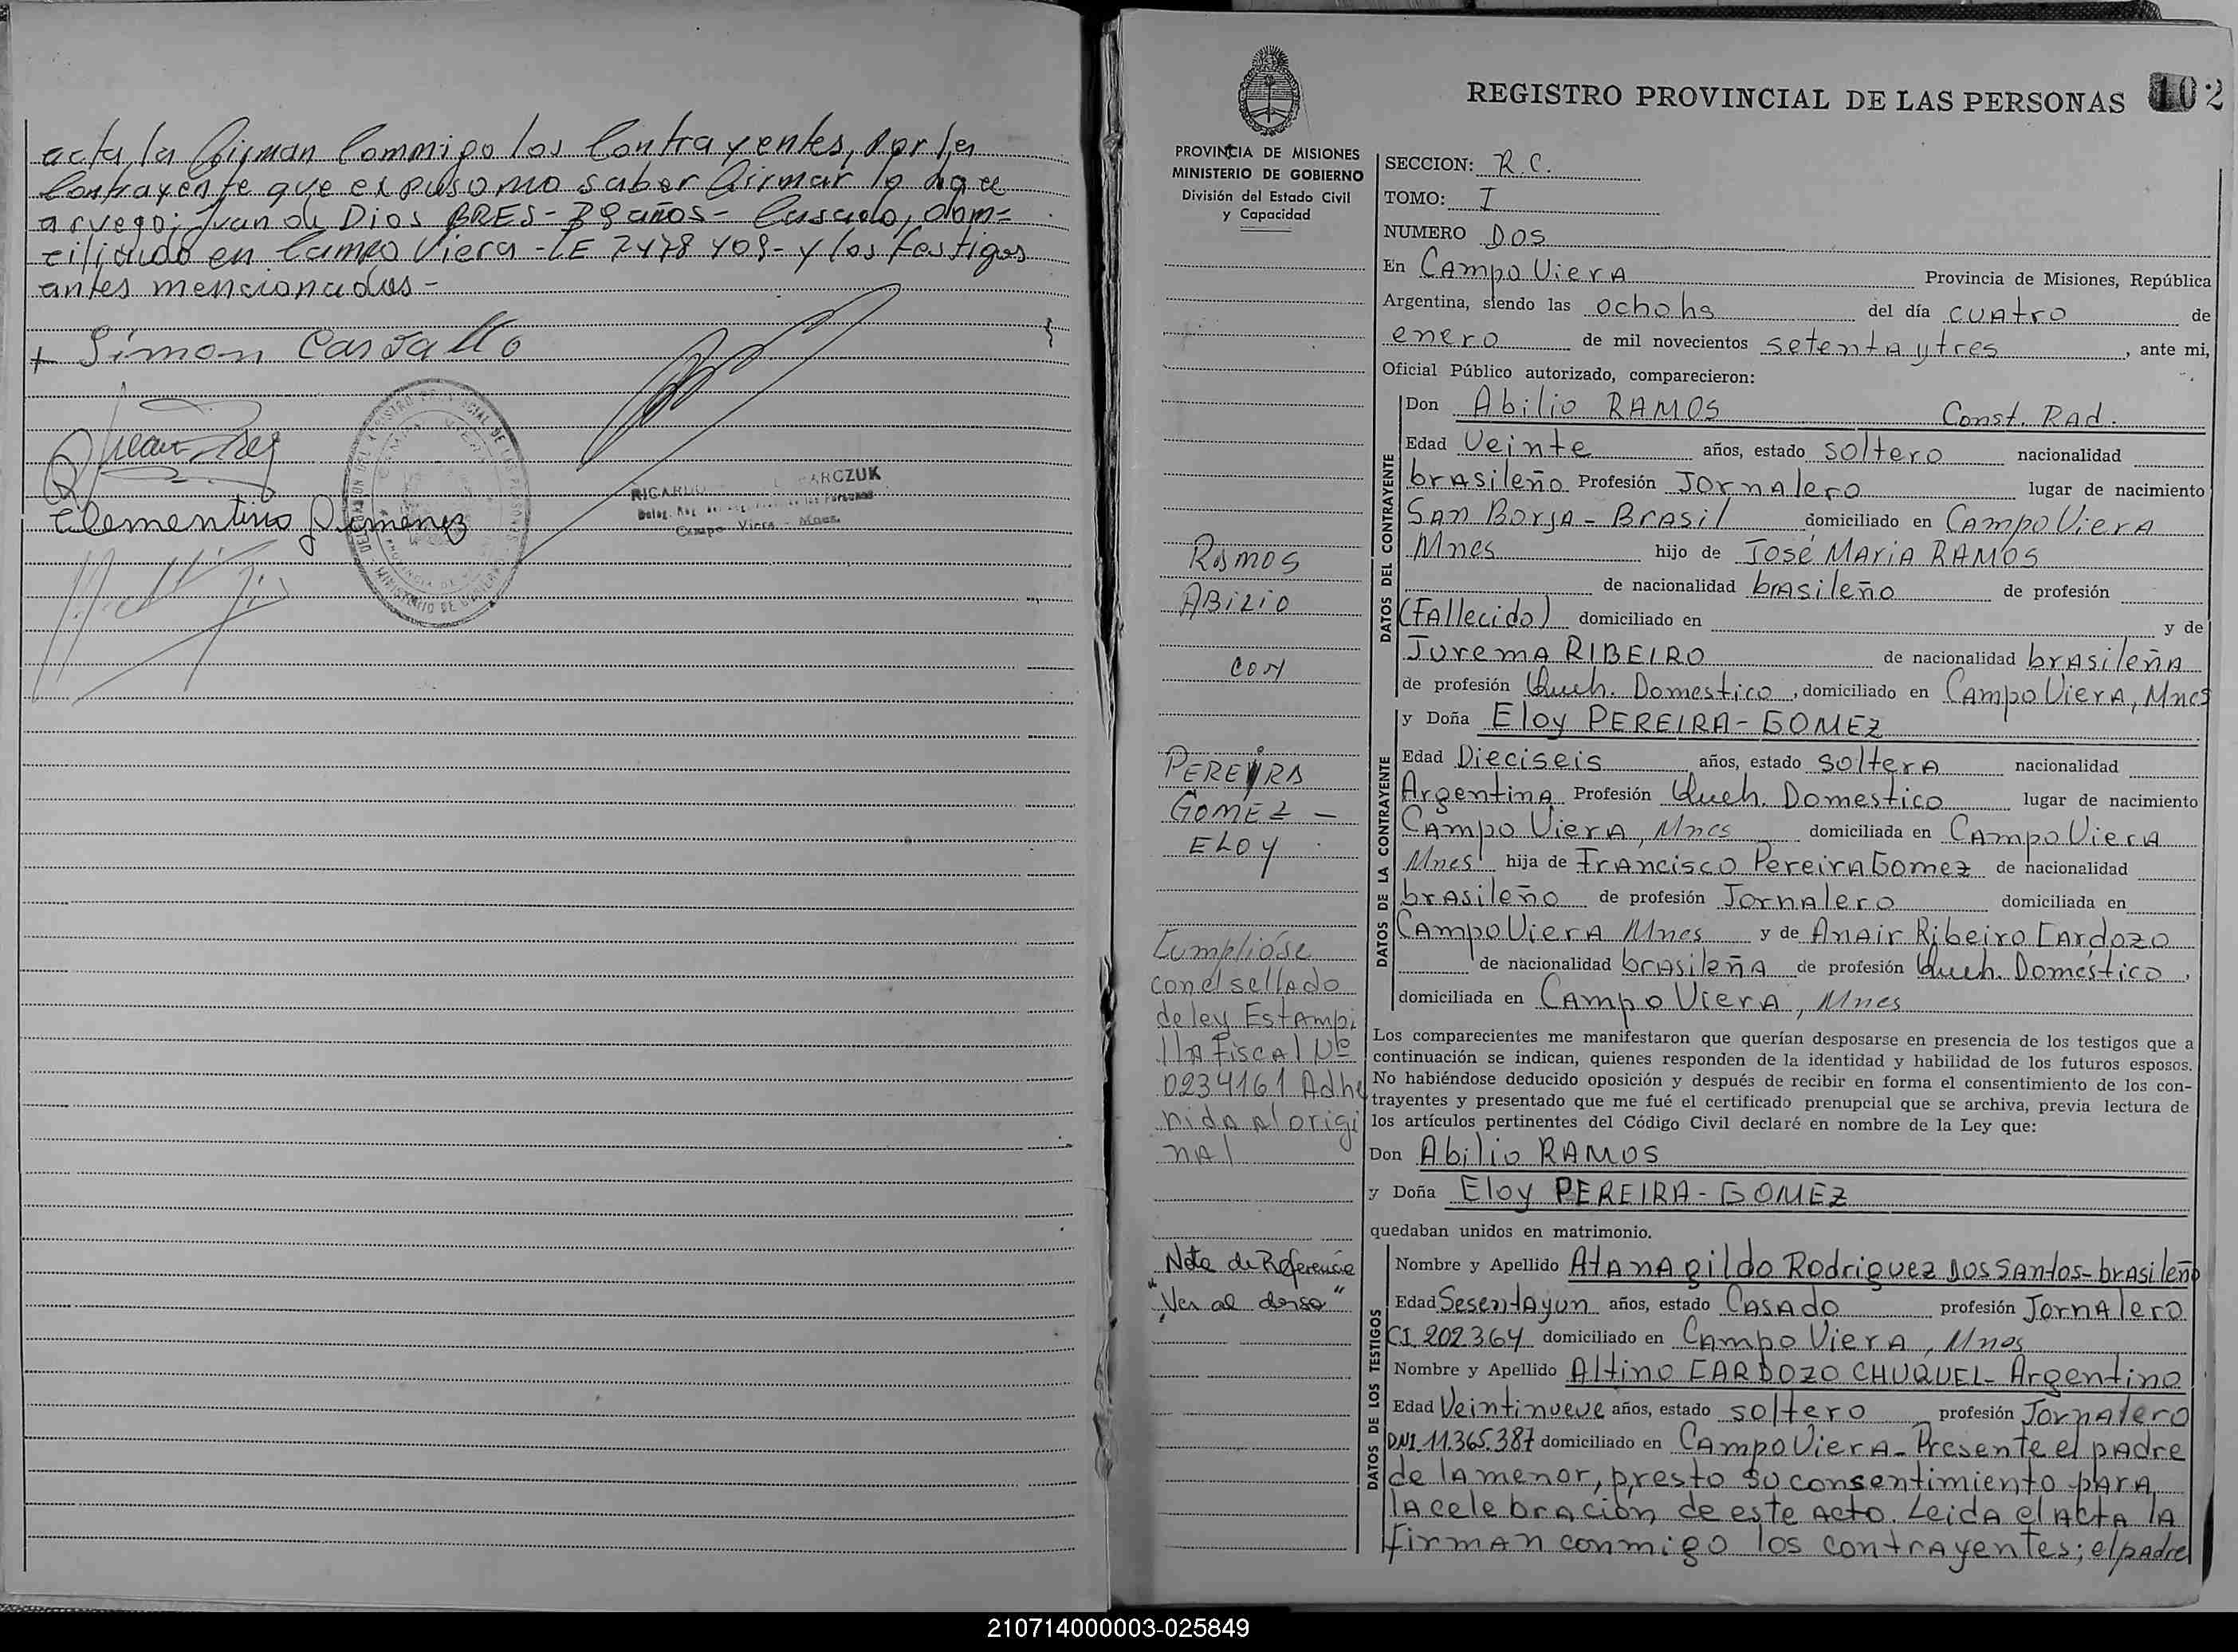 acta, la firman Conmigo los Contrayentes, por la
Contrayente que expuso no saber firmar lo hace
a ruego; Juan de Dios BRES - 38 años - Casado, domi=
ciliado en Campo Viera - LE 7478409 - y los testigos
antes mencionados -
Simon Carvallo
Clementino Jimenez
RICARDO
ARCZUK
Campo Viera - Mnes.
REGISTRO PROVINCIAL DE LAS PERSONAS 102
PROVINCIA DE MISIONES
MINISTERIO DE GOBIERNO
División del Estado Civil
y Capacidad
RAMOS
ABILIO
CON
PEREIRA
GOMEZ -
ELOY
Cumplióse
con el sellado
de ley Estampi
lla Fiscal Nº
0234161 Adhe
rida al origi
nal
Nota de Referencia
"Ver al dorso"
SECCION: R.C.
TOMO: I
NUMERO DOS
En Campo Viera Provincia de Misiones, República
Argentina, siendo las ocho hs del día cuatro de
enero de mil novecientos setenta y tres, ante mi,
Oficial Público autorizado, comparecieron:
DATOS DEL CONTRAYENTE
Don Abilio RAMOS Const. Rad.
Edad Veinte años, estado soltero nacionalidad
brasileño Profesión Jornalero lugar de nacimiento
San Borja - Brasil domiciliado en Campo Viera
Mnes hijo de José Maria RAMOS
de nacionalidad brasileño de profesión
(Fallecido) domiciliado en y de
Jurema RIBEIRO de nacionalidad brasileña
de profesión Queh. Domestico, domiciliado en Campo Viera, Mnes
DATOS DE LA CONTRAYENTE
y Doña Eloy PEREIRA - GOMEZ
Edad Dieciseis años, estado soltera nacionalidad
Argentina Profesión Queh. Domestico lugar de nacimiento
Campo Viera, Mnes domiciliada en Campo Viera
Mnes hija de Francisco Pereira Gomez de nacionalidad
brasileño de profesión Jornalero domiciliada en
Campo Viera Mnes y de Anair Ribeiro Cardozo
de nacionalidad brasileña de profesión Queh. Doméstico,
domiciliada en Campo Viera, Mnes
Los comparecientes me manifestaron que querían desposarse en presencia de los testigos que a
continuación se indican, quienes responden de la identidad y habilidad de los futuros esposos.
No habiéndose deducido oposición y después de recibir en forma el consentimiento de los con-
trayentes y presentado que me fué el certificado prenupcial que se archiva, previa lectura de
los artículos pertinentes del Código Civil declaré en nombre de la Ley que:
Don Abilio RAMOS
y Doña Eloy PEREIRA - GOMEZ
quedaban unidos en matrimonio.
DATOS DE LOS TESTIGOS
Nombre y Apellido Atanagildo Rodriguez Dos Santos - brasileño
Edad Sesentayun años, estado Casado profesión Jornalero
CI 202.364 domiciliado en Campo Viera, Mnes
Nombre y Apellido Altino CARDOZO CHUQUEL - Argentino
Edad Veintinueve años, estado soltero profesión Jornalero
DNI 11.365.387 domiciliado en Campo Viera - Presente el padre
de la menor, presto su consentimiento para
la celebración de este acto. Leida el acta la
firman conmigo los contrayentes; el padre
210714000003-025849